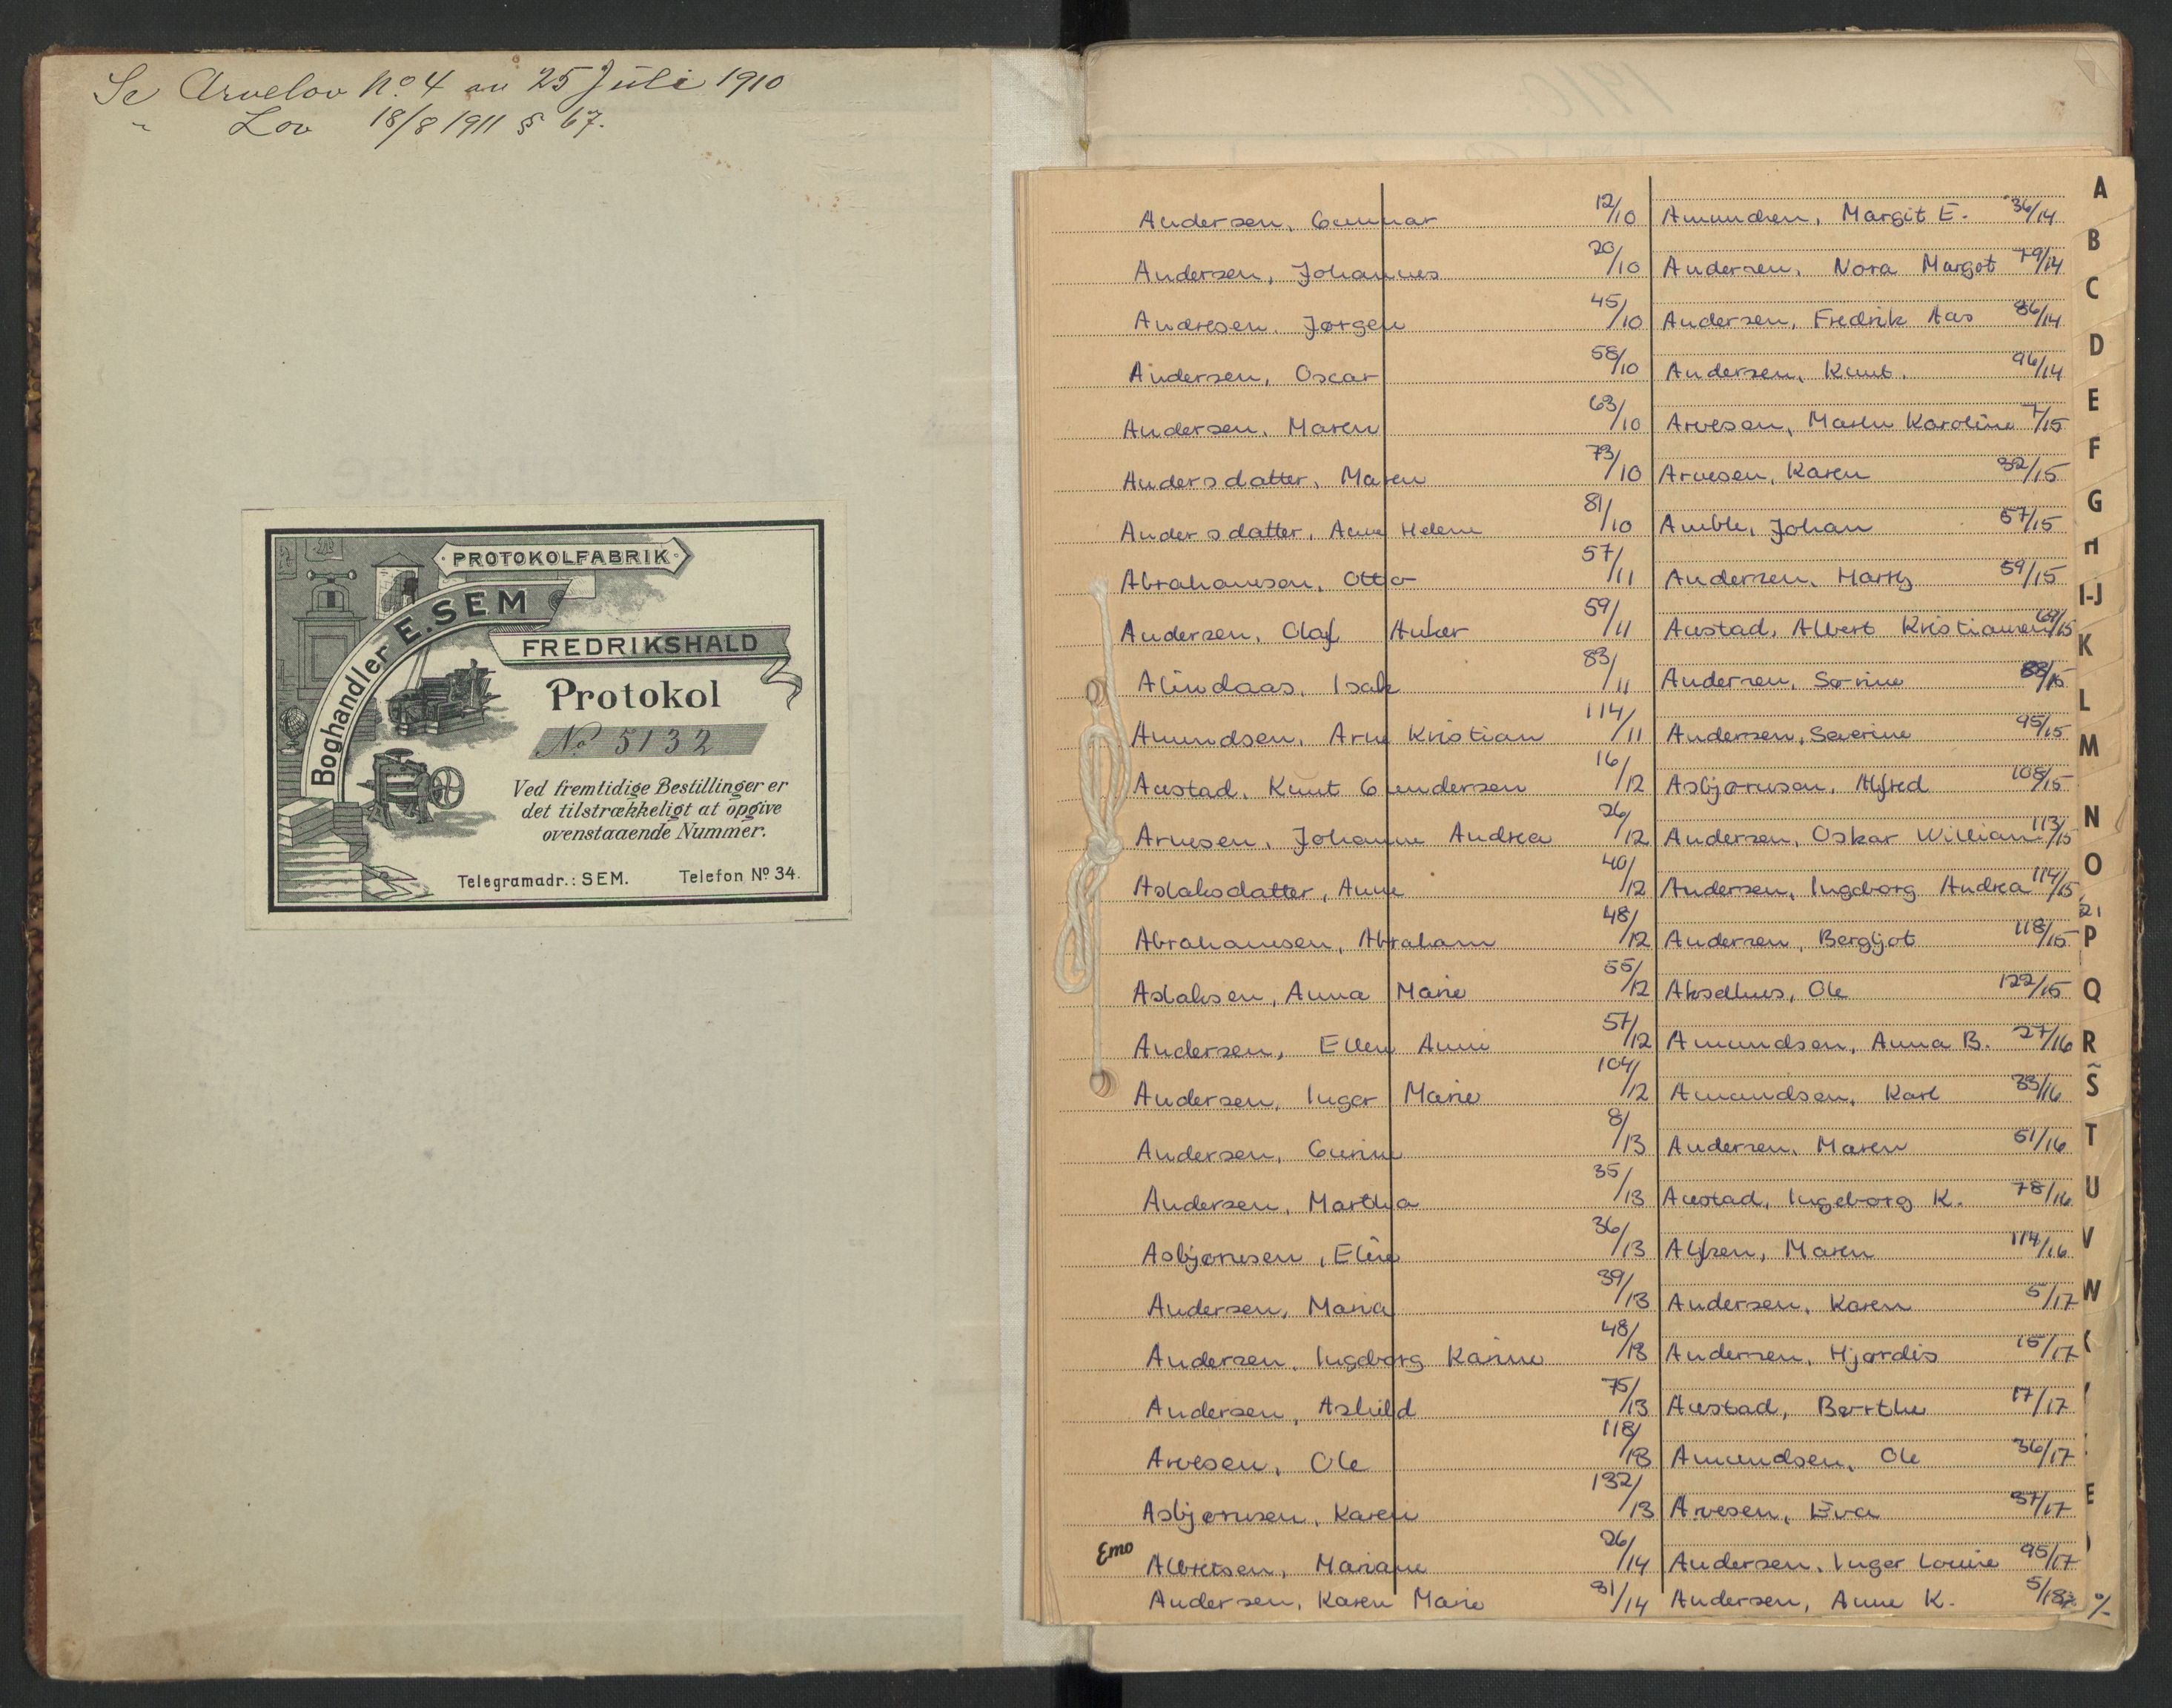 Se Arvelov No. 4 av 25 Juli 1910
" Lov 18/8 1911 § 67.
PROTOKOLFABRIK
Boghandler E. SEM
FREDRIKSHALD
Protokol
No 5132
Ved fremtidige Bestillinger er
det tilstrækkeligt at opgive
ovenstaaende Nummer.
Telegramadr.: SEM. Telefon No 34.
1910
Andersen, Gunnar 12/10
Andersen, Johannes 20/10
Andresen, Jørgen 45/10
Andersen, Oscar 58/10
Andersen, Maren 63/10
Andersdatter, Maren 73/10
Andersdatter, Anne Helene 81/10
Abrahamsen, Otto 57/11
Andersen, Olaf Anker 59/11
Alindaas, Isak 83/11
Amundsen, Arne Kristian 114/11
Austad, Knut Gundersen 16/12
Arnesen, Johanne Andrea 26/12
Aslaksdatter, Anne 40/12
Abrahamsen, Abraham 48/12
Aslaksen, Anna Marie 55/12
Andersen, Ellen Annie 57/12
Andersen, Inger Marie 104/12
Andersen, Gurine 8/13
Andersen, Martha 35/13
Asbjørnsen, Eline 36/13
Andersen, Maria 39/13
Andersen, Ingeborg Karine 48/13
Andersen, Ashild 75/13
Arvesen, Ole 118/13
Asbjørnsen, Karen 132/13
Albretsen, Mariane 26/14
Andersen, Karen Marie 31/14
Emo
Amundsen, Margit E. 36/14
Andersen, Nora Margot 79/14
Andersen, Fredrik Aas 86/14
Andersen, Knut. 96/14
Arvesen, Maren Karoline 7/15
Arnesen, Karen 32/15
Amble, Johan 57/15
Andersen, Harry 59/15
Austad, Albert Kristiansen 69/15
Andersen, Sørine 88/15
Andersen, Severine 95/15
Asbjørnsen, Alfred 108/15
Andersen, Oskar William 113/15
Andersen, Ingeborg Andrea 114/15
Andersen, Bergljot 118/15
Akselhus, Ole 122/15
Amundsen, Anna B. 27/16
Amundsen, Karl 33/16
Andersen, Maren 51/16
Austad, Ingeborg K. 78/16
Alfsen, Maren 114/16
Andersen, Karen 5/17
Andersen, Hjørdis 15/17
Austad, Berthe 17/17
Amundsen, Ole 36/17
Arvesen, Eva 37/17
Andersen, Inger Louise 95/17
Andersen, Anne K. 5/18
A
B
C
D
E
F
G
H
I-J
K
L
M
N
O
P
Q
R
S
T
U
V
W